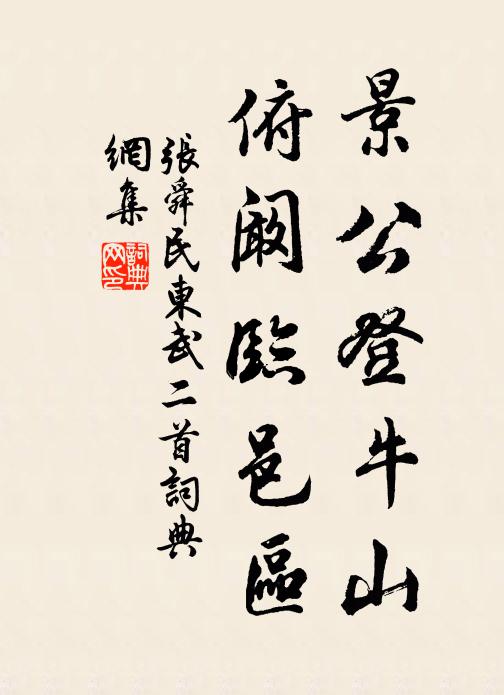 景公登牛山
俯闞臨邑區
張舜民東武二首詞典
網集
詞典網印